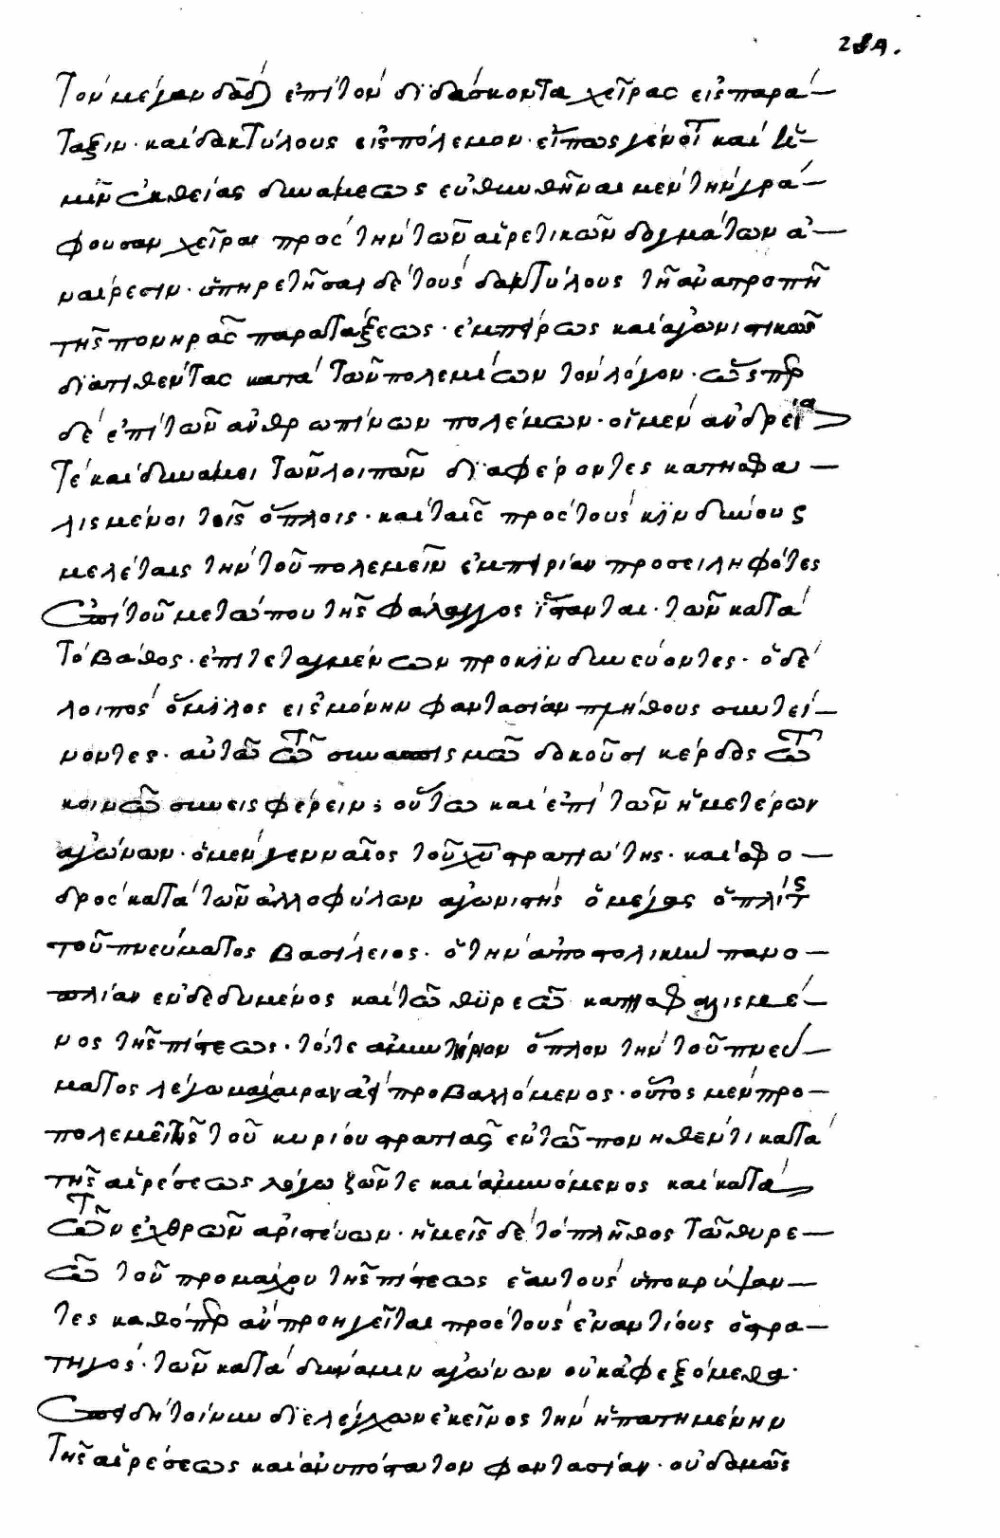 28Α.
Τὸν μέγαν δᾱδ ἐπὶ τὸν διδάσκοντα χεῖρας εἰς παρά–
ταξιν· καὶ δακτύλους εἰς πόλεμον· εἴπως γένοιτ καὶ ἡ–
μῖν ἐκ θείας δυνάμεως εὐθυνθῆναι μὲν τὴν γρά–
φουσαν χεῖρα πρὸς τὴν τῶν αἱρετικῶν δογμάτων ἀ–
ναίρεσιν· ὑπηρετῆσαι δὲ τοὺς δακτύλους τῆ ἀνατροπῆ
τῆς πονηρᾶς παρατάξεως· ἐμπείρως καὶ ἀγωνιστικῶς
διατιθέντας κατὰ τῶν πολεμίων τὸν λόγον· ὥσπρ
δὲ ἐπὶ τῶν ἀνθρωπίνων πολέμων· οἱ μὲν ἀνδρεία
τὲ καὶ δυνάμει τῶν λοιπῶν διαφέροντες κατησφα–
λισμένοι τοῖς ὅπλοις· καὶ ταῖς πρὸς τοὺς κινδύνους
μελέταις τὴν τοῦ πολεμεῖν ἐμπειρίαν προσειληφότες
ἐπὶ τοῦ μετώπου τῆς φάλαγγος ἵστανται· τῶν κατὰ
τὸ βάθος· ἐπιτεταγμένων προκινδυνεύοντες· ὁ δὲ
λοιπὸς ὅμιλος εἰς μόνην φαντασίαν πλήθους συντεί–
νοντες· αὐτῶ τῶ συνασπισμῶ δοκοῦσι κέρδος τῶ
κοινῶ συνεισφέρειν; οὕτω καὶ ἐπὶ τῶν ἡμετέρων
ἀγώνων· ὁ μὲν γενναῖος τοῦ χῡ στρατιώτης· καὶ σφο–
δρὸς κατὰ τῶν ἀλλοφύλων ἀγωνιστὴς ὁ μέγας ὁπλίτς
τοῦ πνεύματος βασίλειος· ὁ τὴν ἀποστολικὴν πανο–
πλίαν ἐνδεδυμένος καὶ τῶ θυρεῶ κατησφαλισμέ–
νος τῆς πίστεως· τό, τε ἀμυντήριον ὅπλον τὴν τοῦ πνεύ–
ματος λέγω μάχαιραν ἀεὶ προβαλλόμενος· οὗτος μὲν προ–
πολεμεῖ τῆς τοῦ κυρίου στρατιᾶς ἐν τῶ πονηθέντι κατὰ
τῆς αἱρέσεως λόγω ζῶν τε καὶ ἀμυνόμενος καὶ κατὰ
τῶν ἐχθρῶν ἀριστεύων· ἡμεῖς δὲ τὸ πλῆθος τῶ θυρε–
ῶ τοῦ προμάχου τῆς πίστεως ἑαυτοὺς ὑποκρύψαν–
τες καθόπρ ἂν προηγεῖται πρὸς τοὺς ἐναντίους ὁ στρα–
τηγός· τῶν κατὰ δύναμιν ἀγώνων οὐκ ἀφεξόμεθα·
ἐπειδὴ τοίνυν διελέγχων ἐκεῖνος τὴν ἠπατημένην
τῆς αἱρέσεως καὶ ἀνυπόστατον φαντασίαν· οὐδαμῶς